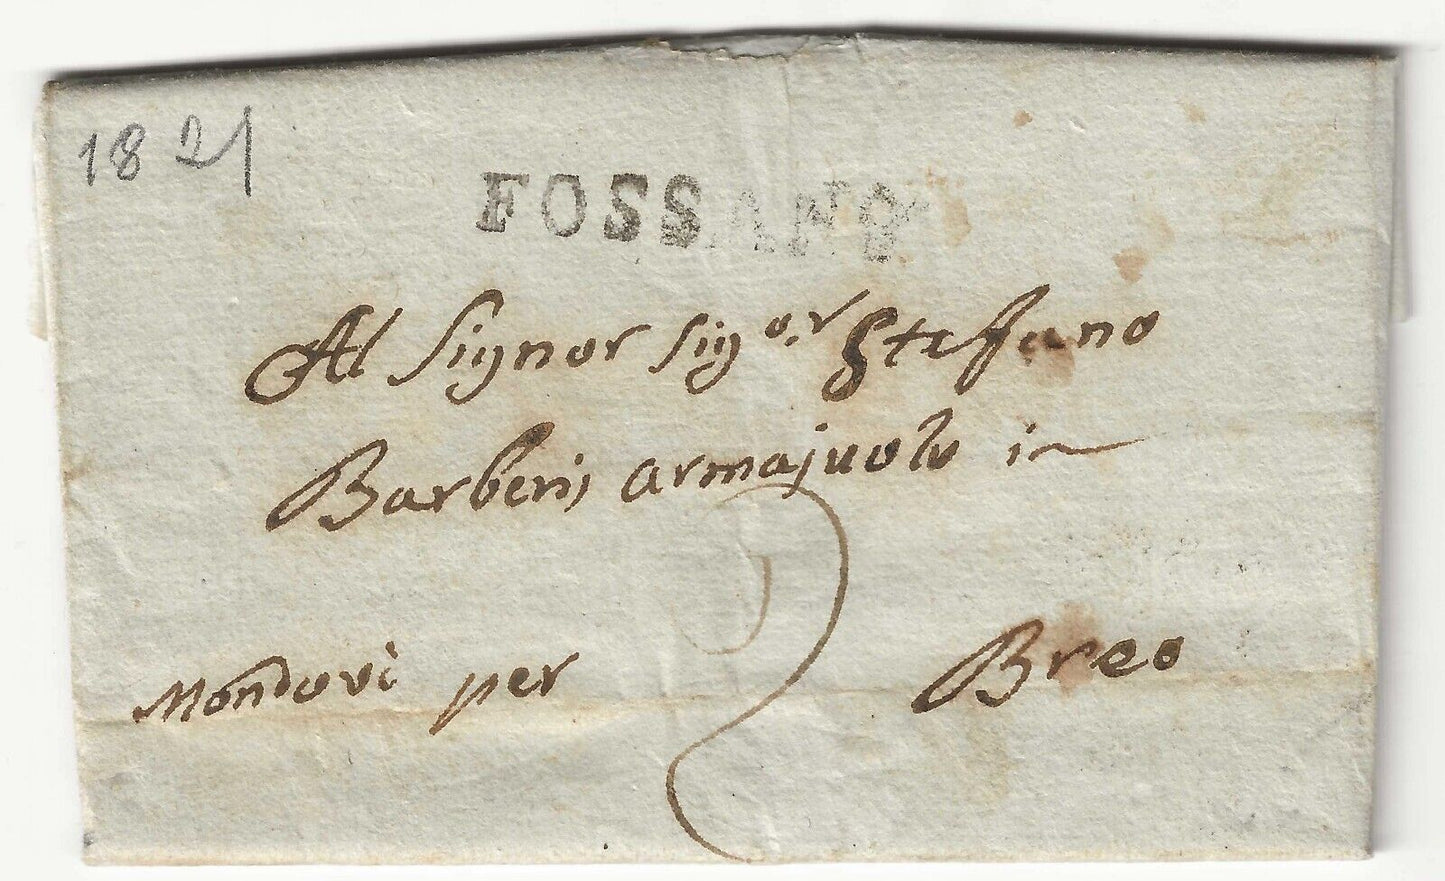 1821
FOSSANO
Al Signor Sig.or Stefano
Barberis armajuolo in
Mondovì per Breo
2